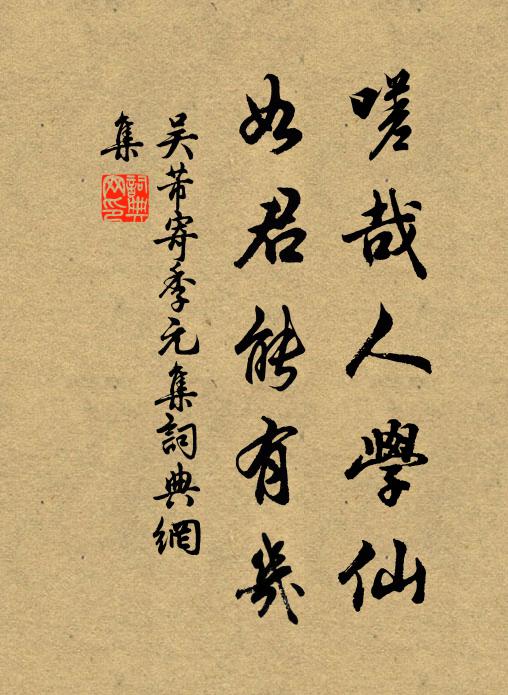 嗟哉人學仙
如君能有幾
吳芾寄季元集詞典網
集
詞典
网印